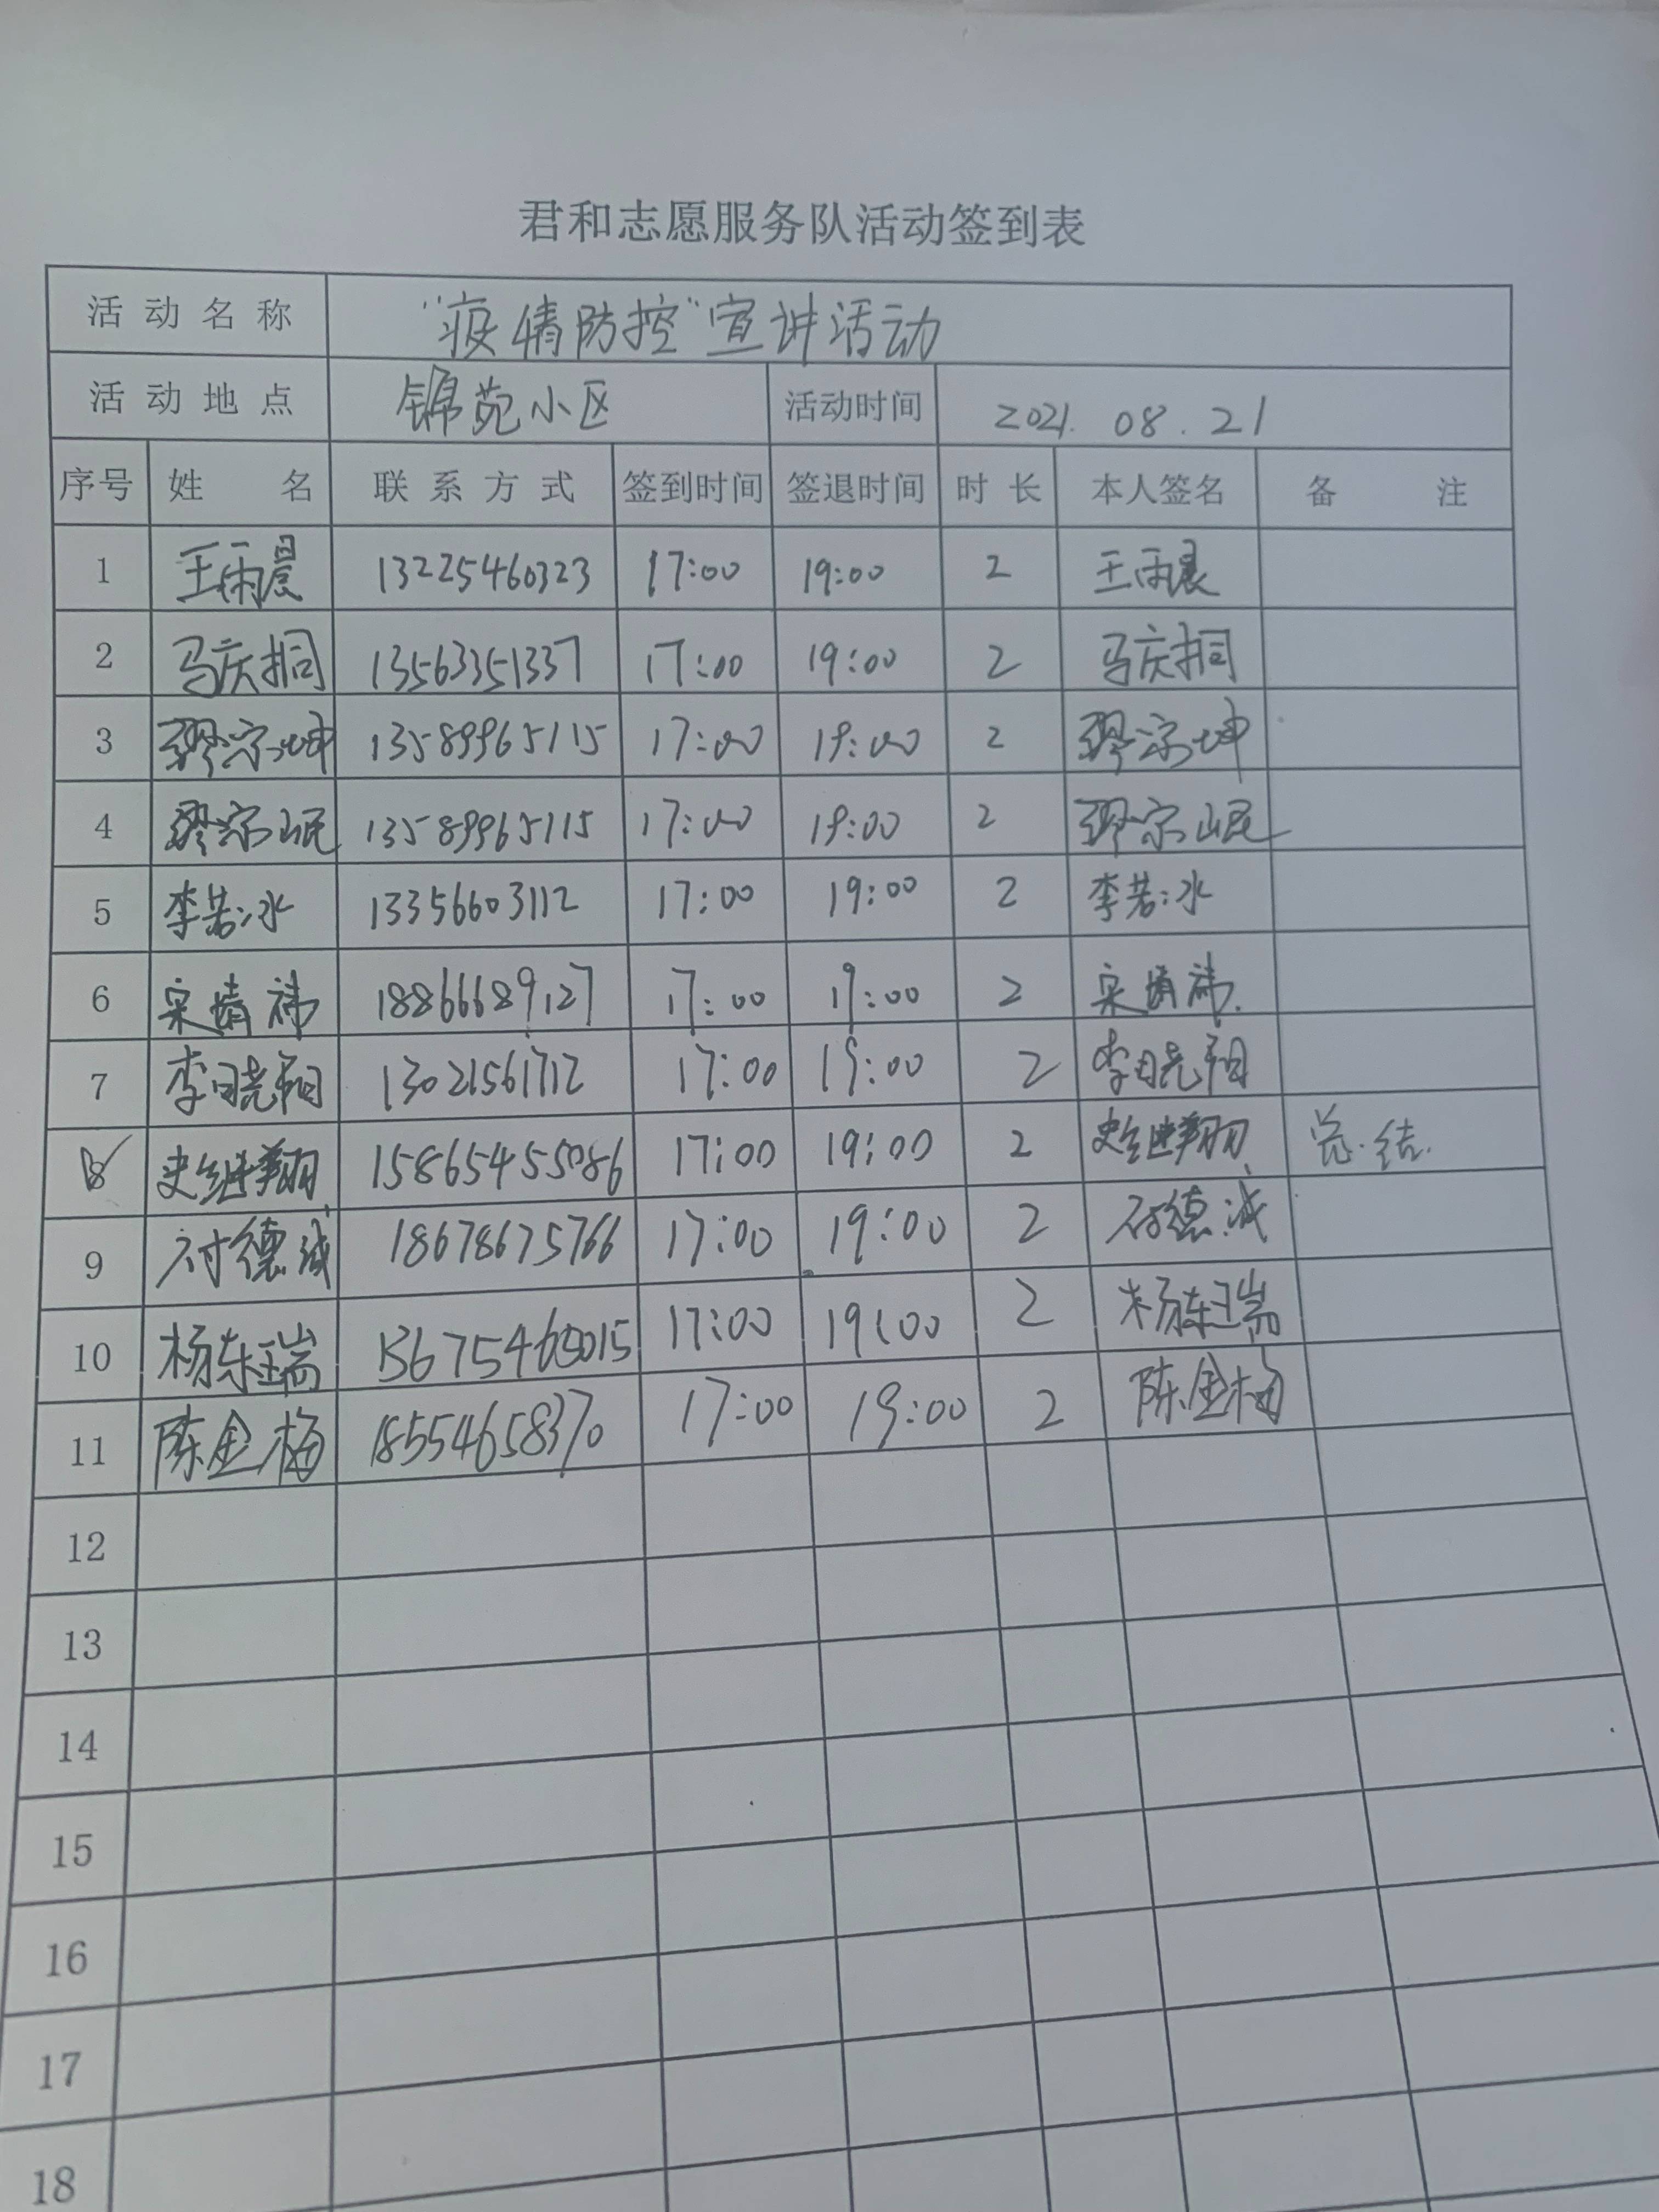 君和志愿服务队活动签到表
活动名称 "疫情防控"宣讲活动
活动地点 锦苑小区 活动时间 2021.08.21
序号 姓名 联系方式 签到时间 签退时间 时长 本人签名 备注
1 王雨晨 13225460323 17:00 19:00 2 王雨晨
2 马庆桐 13563351337 17:00 19:00 2 马庆桐
3 缪宗坤 13589965115 17:00 19:00 2 缪宗坤
4 缪宗岷 13589965115 17:00 19:00 2 缪宗岷
5 李若冰 13356603112 17:00 19:00 2 李若冰
6 宋婧祎 18866689127 17:00 19:00 2 宋婧祎
7 李晓阳 13021561712 17:00 19:00 2 李晓阳
8 史继翔 15865455086 17:00 19:00 2 史继翔 总结.
9 付德诚 18678675766 17:00 19:00 2 付德诚
10 杨东瑞 17:00 19:00 2 杨东瑞
11 陈金梅 18554658370 17:00 19:00 2 陈金梅
12
13
14
15
16
17
18